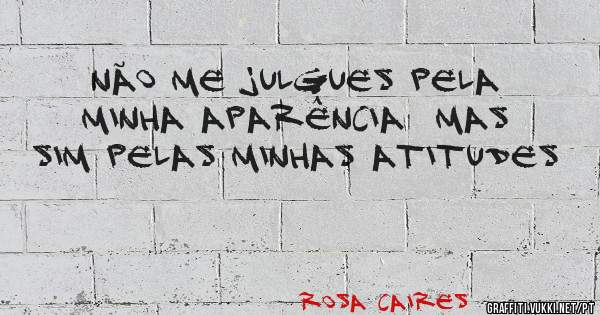 NÃO ME JULGUES PELA
MINHA APARÊNCIA MAS
SIM PELAS MINHAS ATITUDES
ROSA CAIRES
GRAFFITI.VUKKI.NET/PT